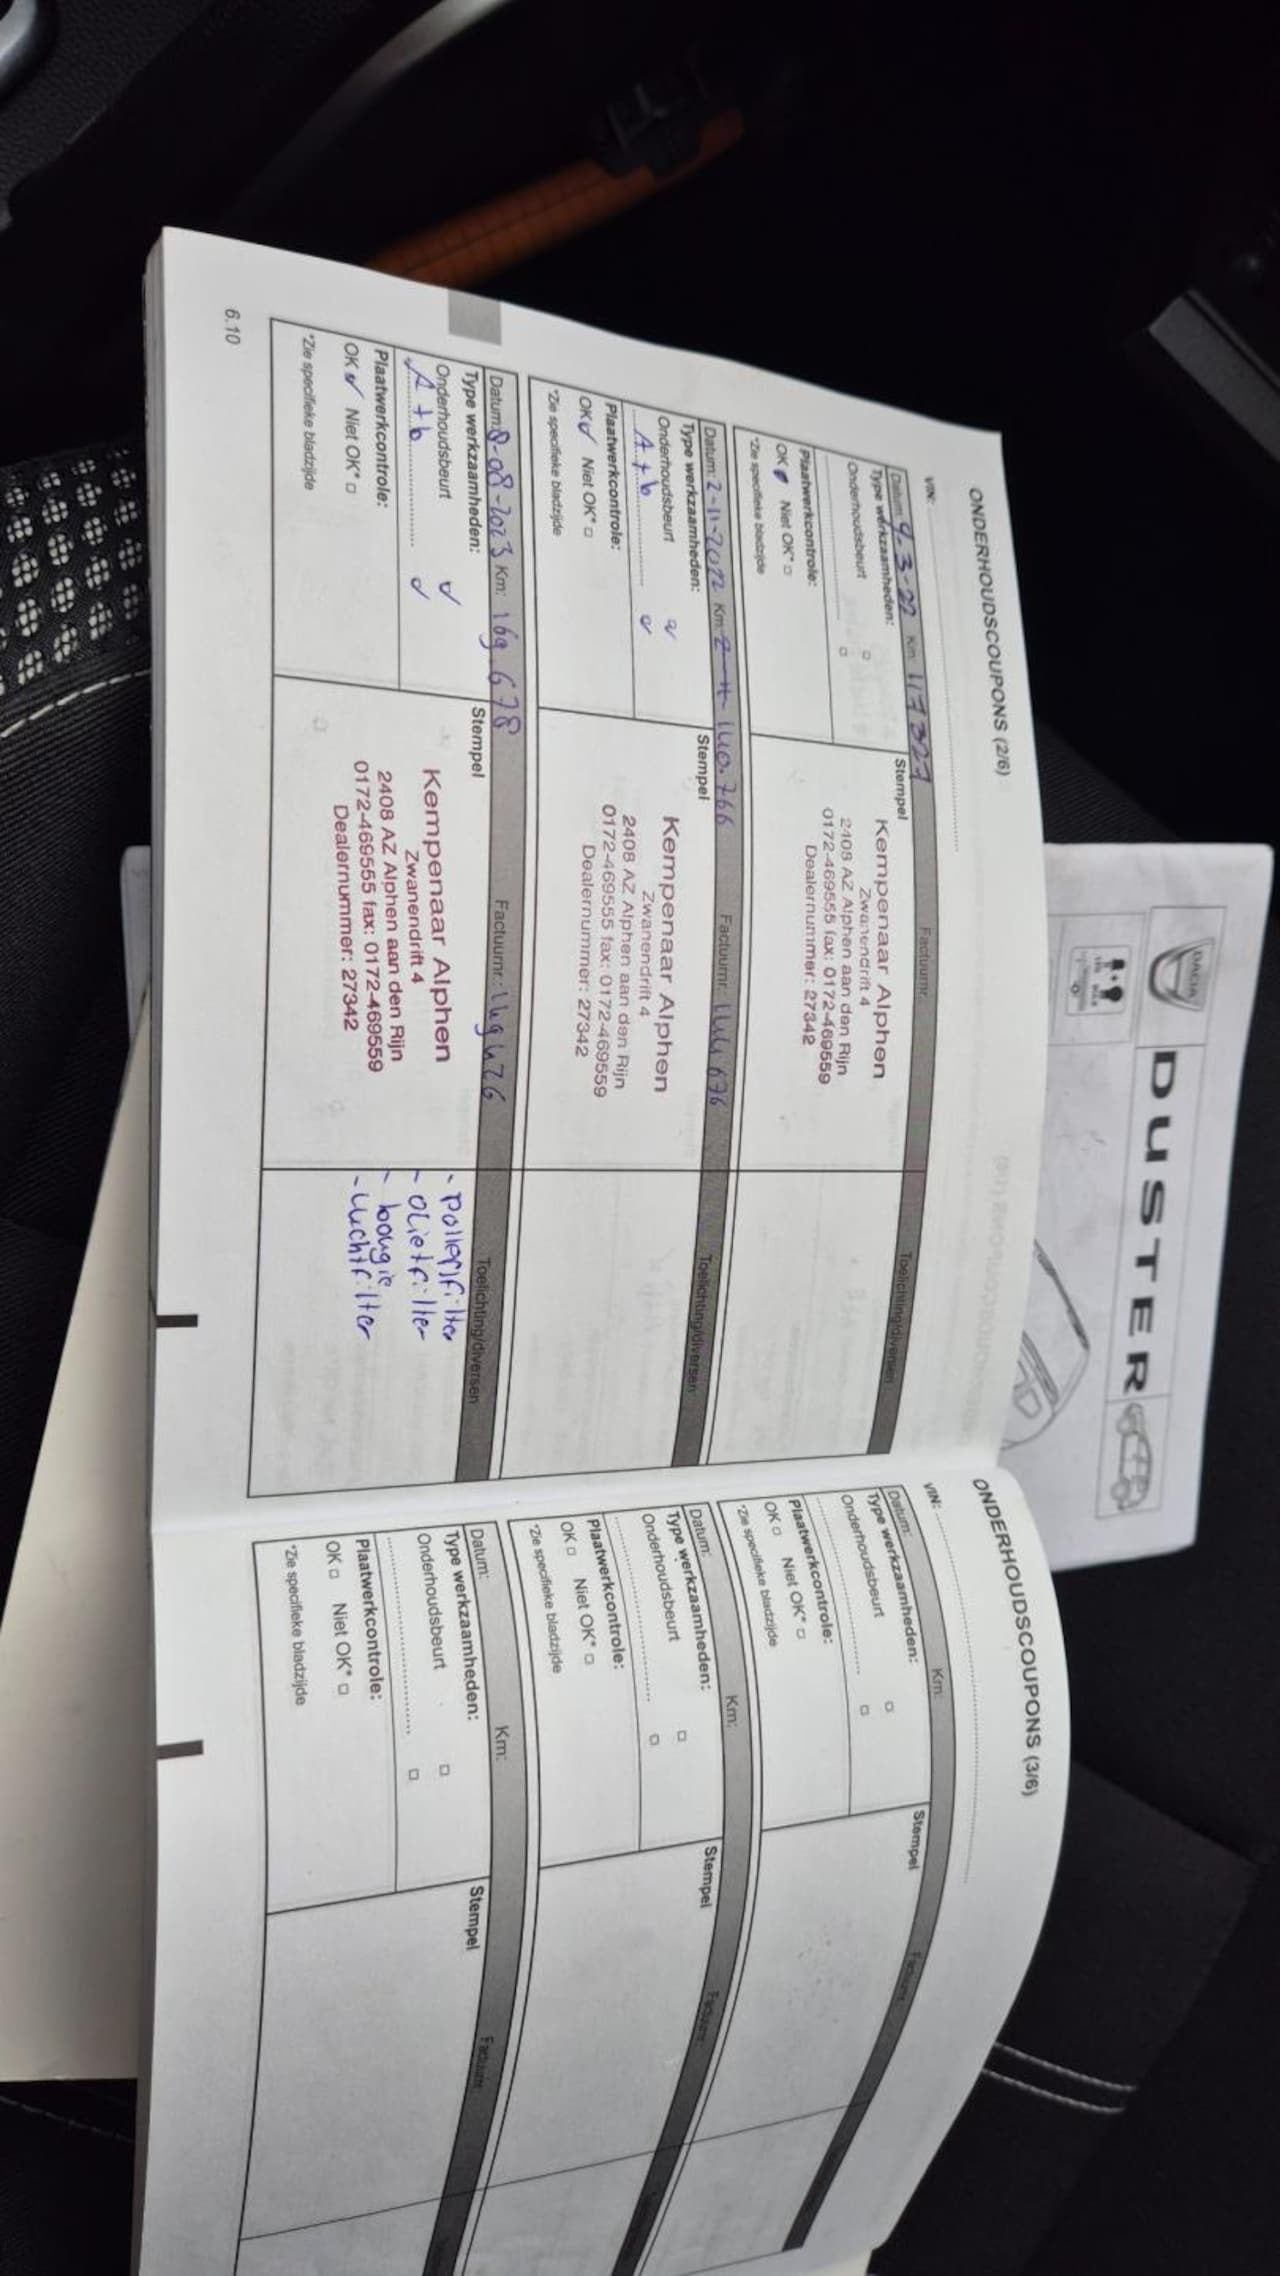 ONDERHOUDSCOUPONS (2/6)
VIN:
Datum: 9-3-22 Km: 117327 Factuurnr.: Toelichting/diversen
Type werkzaamheden:
Onderhoudsbeurt
Plaatwerkcontrole:
OK Niet OK*
*Zie specifieke bladzijde
Stempel
Kempenaar Alphen
Zwanendrift 4
2408 AZ Alphen aan den Rijn
0172-469555 fax: 0172-469559
Dealernummer: 27342
Datum: 2-11-2022 Km: 140.766 Factuurnr.: 144676 Toelichting/diversen
Type werkzaamheden:
Onderhoudsbeurt
A + b
Plaatwerkcontrole:
OK Niet OK*
*Zie specifieke bladzijde
Stempel
Kempenaar Alphen
Zwanendrift 4
2408 AZ Alphen aan den Rijn
0172-469555 fax: 0172-469559
Dealernummer: 27342
Datum: 8-08-2023 Km: 169.678 Factuurnr.: 149426 Toelichting/diversen
Type werkzaamheden:
Onderhoudsbeurt
A + b
Plaatwerkcontrole:
OK Niet OK*
*Zie specifieke bladzijde
Stempel
Kempenaar Alphen
Zwanendrift 4
2408 AZ Alphen aan den Rijn
0172-469555 fax: 0172-469559
Dealernummer: 27342
- pollenfilter
- oliefilter
- bougie
- Luchtfilter
6.10
ONDERHOUDSCOUPONS (3/6)
VIN:
Datum: Km: Factuurnr.:
Type werkzaamheden:
Onderhoudsbeurt
Plaatwerkcontrole:
OK Niet OK*
*Zie specifieke bladzijde
Stempel
Datum: Km: Factuurnr.:
Type werkzaamheden:
Onderhoudsbeurt
Plaatwerkcontrole:
OK Niet OK*
*Zie specifieke bladzijde
Stempel
Datum: Km: Factuurnr.:
Type werkzaamheden:
Onderhoudsbeurt
Plaatwerkcontrole:
OK Niet OK*
*Zie specifieke bladzijde
Stempel
DACIA
DUSTER